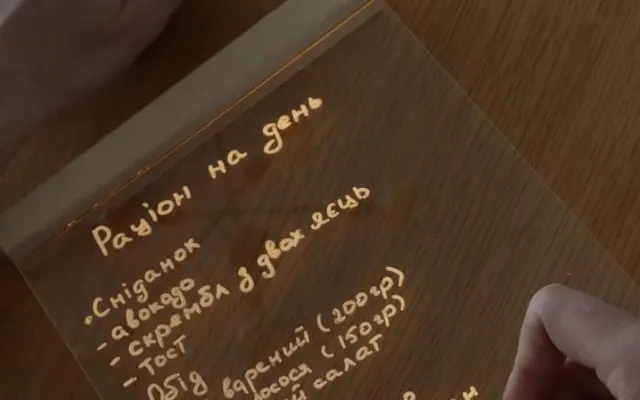 Раціон на день
• Сніданок
- авокадо
- скрембл з двох яєць
- Тост
Обід
варений (200гр)
лосося (150гр)
салат